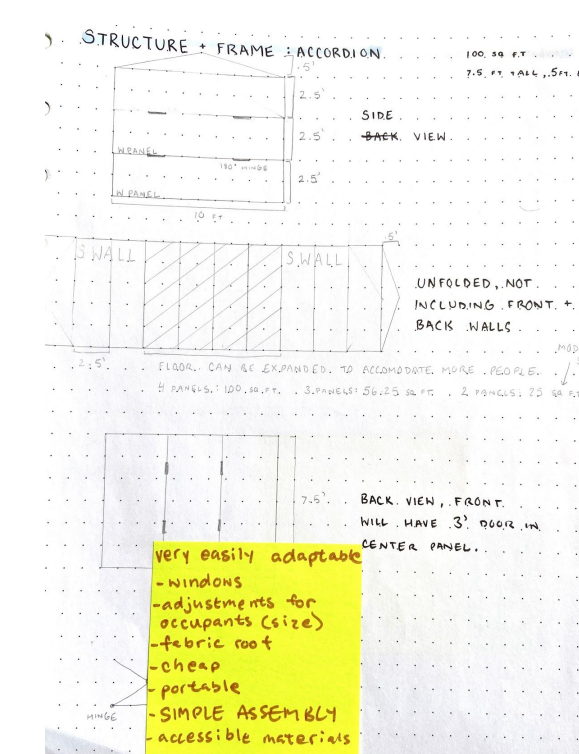 STRUCTURE + FRAME : ACCORDION
100 SQ F.T
7.5 FT TALL, .5FT.
.5'
2.5'
SIDE
2.5'
BACK VIEW
W PANEL
180° HINGE
2.5'
W PANEL
10 FT
.5'
S WALL
S WALL
UNFOLDED, NOT
INCLUDING FRONT +
BACK WALLS
MOD
2.5'
FLOOR CAN BE EXPANDED TO ACCOMODATE MORE PEOPLE.
4 PANELS: 100 SQ.FT. 3 PANELS: 56.25 SQ FT. 2 PANELS: 25 SQ FT
7.5'
BACK VIEW, FRONT
WILL HAVE 3' DOOR IN
CENTER PANEL.
very easily adaptable
- windows
- adjustments for
occupants (size)
- fabric roof
- cheap
- portable
HINGE
- SIMPLE ASSEMBLY
- accessible materials